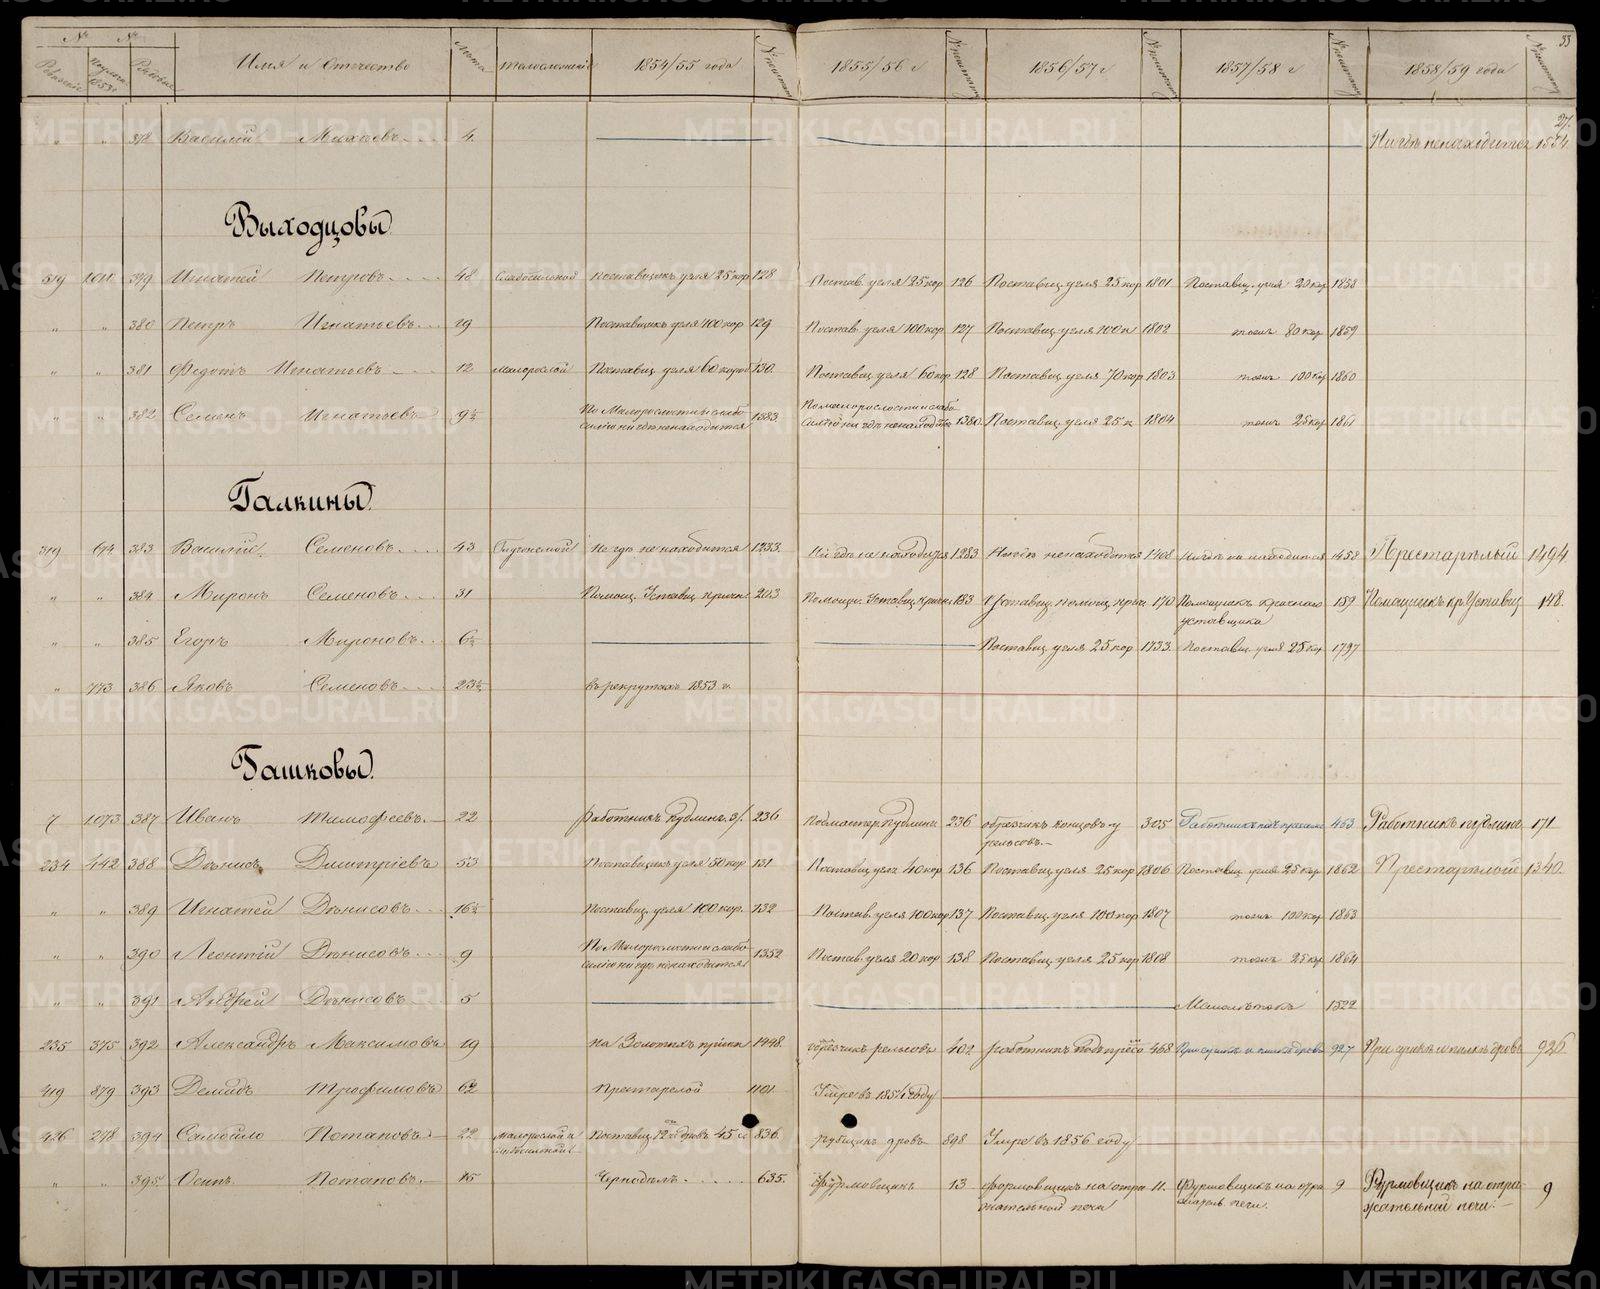 33
№ № Имя и Отчество Лѣта Телосложеніе 1854/55 года 1855/56 г 1856/57 г 1857/58 г 1858/59 года
27.
" " 378 Василій Михѣевъ 4. Нигдѣ ненаходится 1554.
Выходцовы
519 1011 379 Игнатей Петровъ 48 Слабосильной поставщикъ угля 25 кор 128 Постав. угля 25 кор 126 Поставщ. угля 25 кор 1801 Поставщ. угля 20 кор 1858
" " 380 Петръ Игнатьевъ 19 Поставщикъ угля 100 кор 129 Постав. угля 100 кор 127 Поставщ. угля 100 к 1802 тоже 80 кор 1859
" " 381 Федотъ Игнатьевъ 12 малорослой Поставщ. угля 60 короб 130. Поставщ. угля 60 кор 128 Поставщ. угля 70 кор 1803 тоже 100 кор 1860
" " 382 Семенъ Игнатьевъ 9½ По Малорослости и слабосилію ни гдѣ ненаходится 1383. По малорослости и слабосилію ни гдѣ ненаходится 1380. Поставщ. угля 25 к 1804 тоже 25 кор 1861
Галкины
319 614 383 Василій Семеновъ 43 Глухонемой Не гдѣ не находится 1233. Ни гдѣ не находится 1283 Нигдѣ ненаходится 1408 Нигдѣ не находится 1458 Престарѣлый 1494.
" " 384 Миронъ Семеновъ 31 Помощ. Уставщ. кричн. 203 Помощн. Уставщ. кричн. 183 Уставщ. помощ. крич 170 Помощникъ кричнаго уставщика 159 Помощникъ кр Уставщ 148.
" " 385 Егоръ Мироновъ 6½ Поставщ. угля 25 кор 1733. Поставщ. угля 25 кор 1797
" 773 386 Яковъ Семеновъ 23½ въ рекрутахъ 1853 г.
Гашковы
7 1073 387 Иванъ Тимофеевъ 22 работникъ Пудлинг. 236 Подмастер. Пудлинг 236 обрезчикъ концовъ у рельсовъ 305 453 Работникъ пудлинг 171
234 442 388 Дѣнисъ Димитріевъ 53 Поставщикъ угля 50 кор 131 Поставщ угля 40 кор 136 Поставщ угля 25 кор 1806 Поставщ угля 25 кор 1862 Престарѣлый 1340.
" " 389 Игнатей Дѣнисовъ 16½ Поставщ. угля 100 кор. 132 Постав. угля 100 кор 137 Поставщ. угля 100 кор 1807 тоже 100 кор 1863
" " 390 Леонтій Дѣнисовъ 9 По Малорослости и слабосилію ни гдѣ ненаходится 1352 Постав. угля 20 кор 138 Поставщ угля 25 кор 1808 тоже 25 кор 1864
" " 391 Андрей Дѣнисовъ 5 Малолѣтокъ 1522
235 375 392 Александръ Максимовъ 19 на Золотыхъ пріиск 1448. обрезчикъ рельсовъ 402 работникъ подъ 468 927 При сушкѣ и пилкѣ дровъ 926
419 879 393 Демидъ Трофимовъ 62 Престарелой 1101 Умре въ 1854 году
426 278 394 Самойло Потаповъ 22 малорослой и слабосильной Поставщ. 12 дровъ 45 836. рубщикъ дровъ 898 Умре въ 1856 году
" " 395. Осипъ Потаповъ 15 Чернодѣлъ 635. Фурмовщикъ 13 формовщикъ на отражательной печи 11. Фурмовщикъ на отражатель. печи. 9 Фурмовщикъ на отражательной печи. 9